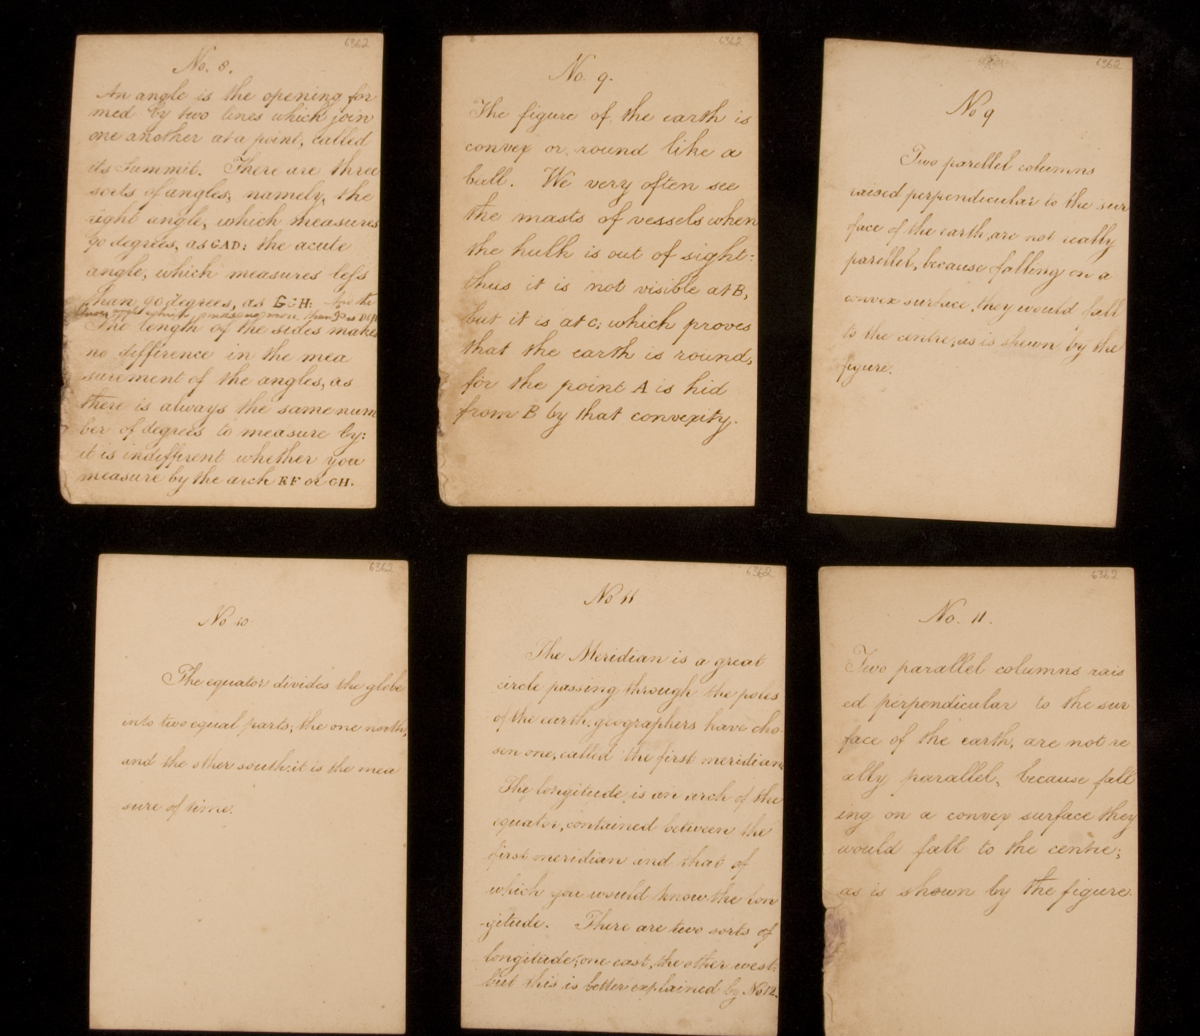 6362
No. 8.
An angle is the opening for
med by two lines which join
one another at a point, called
its summit. There are three
sorts of angles, namely, the
right angle, which measures
90 degrees, as GAD: the acute
angle, which measures less
than 90 degrees, as GCH: And the
The length of the sides make
no difference in the mea
surement of the angles, as
there is always the same num
ber of degrees to measure by:
it is indifferent whether you
measure by the arch EF or GH.
6362
No. 9.
The figure of the earth is
convex or round like a
ball. We very often see
the masts of vessels when
the hulk is out of sight:
thus it is not visible at B,
but it is at C; which proves
that the earth is round,
for the point A is hid
from B by that convexity.
6362
No 9
Two parellel columns
raised perpendicular to the sur
face of the earth, are not really
parellel, because falling on a
convex surface, they would fall
to the centre, as is shewn by the
figure.
6362
No 10
The equator divides the globe
into two equal parts; the one north,
and the other south; it is the mea
sure of time.
6362
No 11
The Meridian is a great
circle passing through the poles
of the earth; geographers have cho
sen one, called the first meridian.
The longitude is an arch of the
equator, contained between the
first meridian and that of
which you would know the lon
gitude. There are two sorts of
longitude; one east, the other west:
but this is better explained by No 12.
6362
No. 11.
Two parallel columns rais
ed perpendicular to the sur
face of the earth, are not re
ally parallel, because fall
ing on a convex surface they
would fall to the centre;
as is shown by the figure.